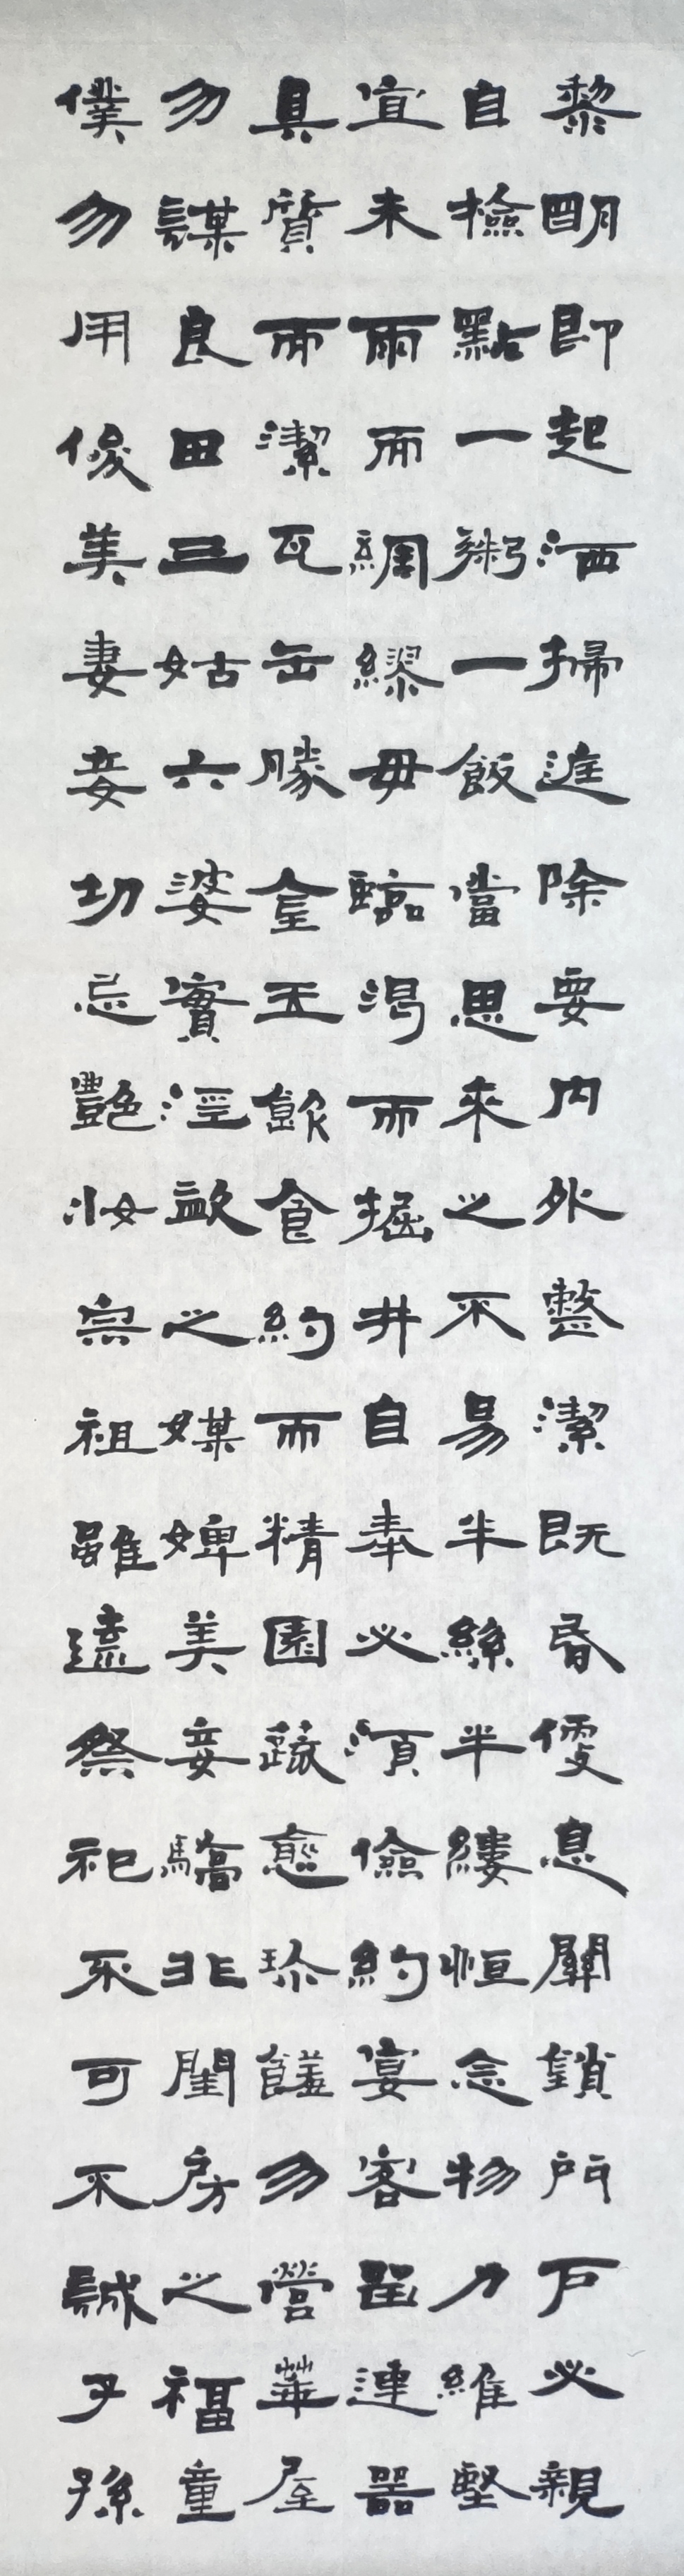 黎明即起洒掃廷除要内外整潔既昏便息關鎖門戶必親
自檢點一粥一飯當思來之不易半絲半縷恒念物力維堅
宜未雨而綢繆毋臨渴而掘井自奉必須儉約宴客留連器
具質而潔瓦缶勝金玉飲食約而精園蔬愈珍饈勿營華屋
勿謀良田三姑六婆實淫盜之媒婢美妾驕非閨房之福童
僕勿用俊美妻妾切忌艷妝宗祖雖遠祭祀不可不誠子孫